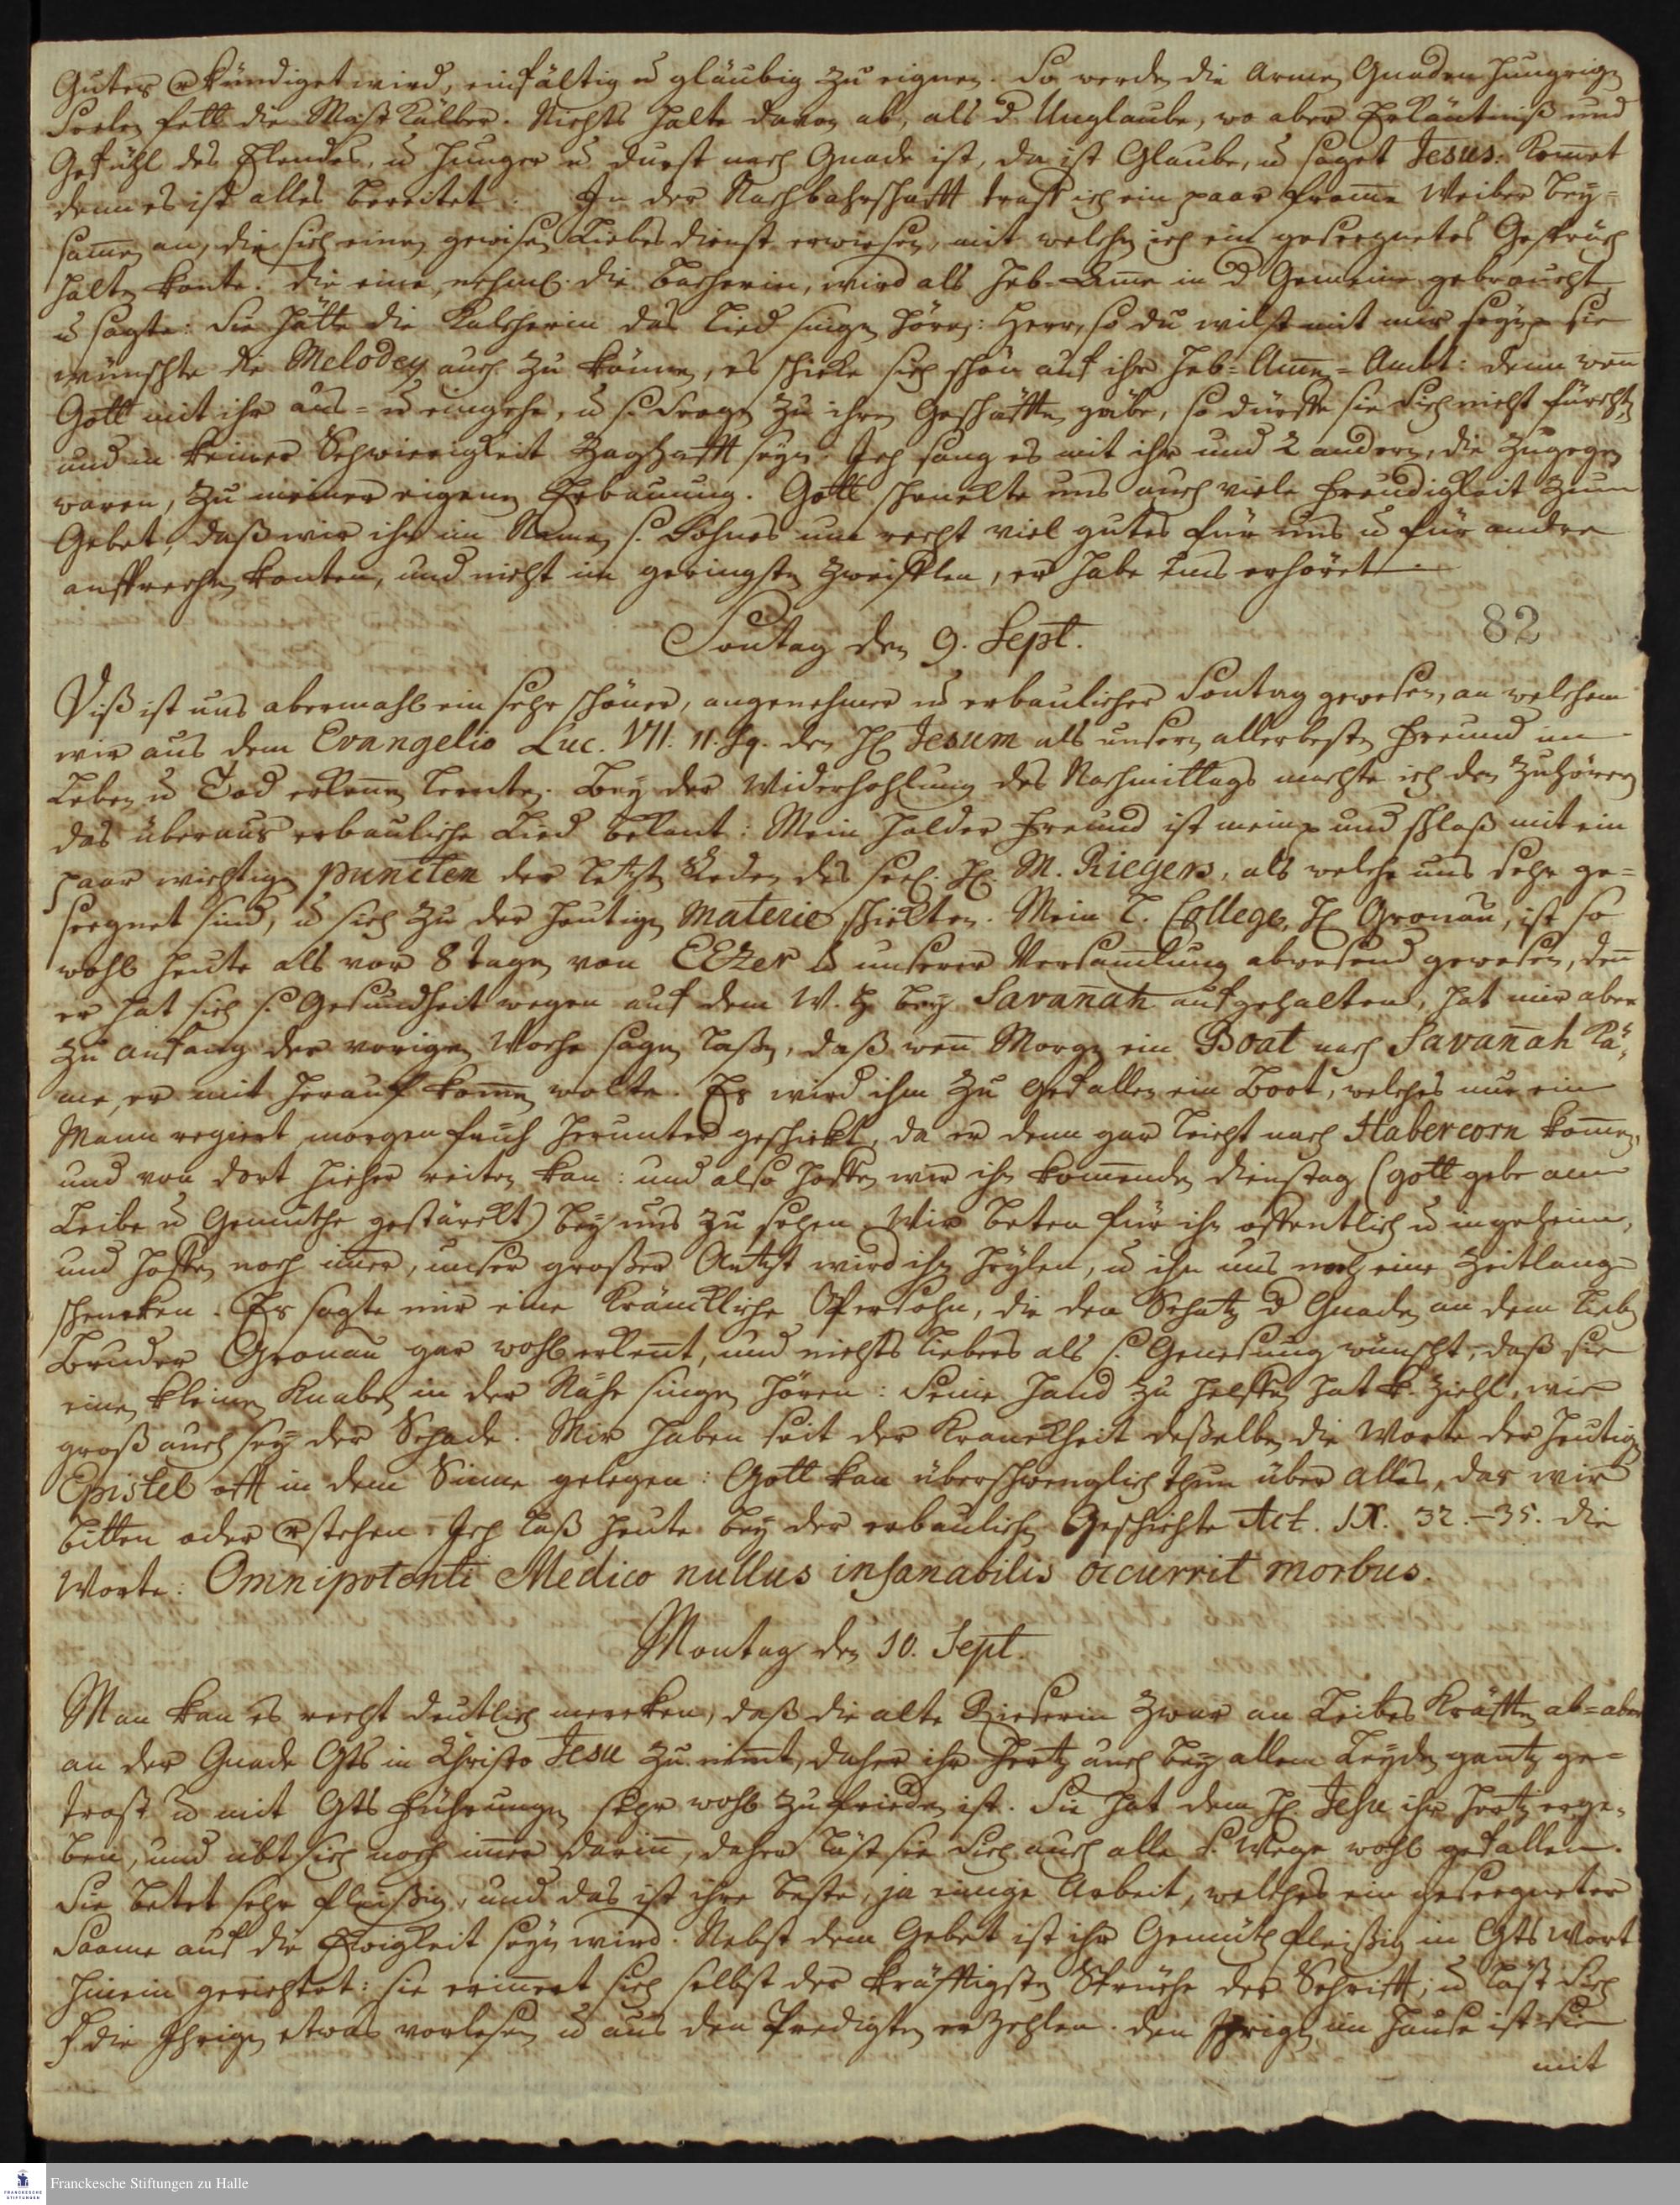 Gutes verkündiget wird, einfältig u gläubig zu eignen. So werden die armen Gnaden hungrige
Seelen fett die Mast Kälber. Nichts halte davon ab, als d. Unglaube, wo aber Erkäntniß und
Gefühl des Elendes, u Hunger u Durst nach Gnade ist, da ist Glaube, u saget Jesus: Komet
denn es ist alles bereitet. In der Nachbahrschafft traff ich ein paar frome Weiber bey=
samen an, die sich einen gewisen Liebes dienst erwiesen, mit welchen ich ein geseegnetes Gespräch
halten konte. Die eine, nehml. die Bacherin, wird als Heb-Ame in d Gemeine gebraucht,
u sagte: Sie hätte die Kalcherin das Lied singen hören: Herr, so du wilst mit mir seyn p sie
wünschte die Melodey auch zu können, es schicke sich schön auf ihr Heb-Amen-Ambt: denn wen
Gott mit ihr aus= u eingehe, u s. Seegen zu ihren Geschäfften gäbe, so dürffte sie sich nicht fürchten
und in keiner Schwierigkeit zaghafft seyn. Ich sang es mit ihr und 2 andern, die zugegen
waren, zu meiner eigenen Erbauung. Gott schenckte uns auch viele Freudigkeit zum
Gebet, daß wir ihn im Namen s. Sohnes um recht viel gutes für uns u für andre
ansprechen konten, und nicht im geringsten zweifflen, er habe uns erhöret.
82
Sontag den 9. Sept.
Diß ist uns abermahl ein sehr schöner, angenehmer u erbaulicher Sontag gewesen, an welchem
wir aus dem Evangelio Luc. VII. 11. sq. den H Jesum als unsern allerbesten Freund im
Leben u Tod erkenen lernten. Bey der Widerhohlung des Nachmittags machte ich den Zuhörern
das überaus erbauliche Lied bekant: Mein holder Freund ist mein p und schloß mit ein
paar wichtigen puncten der letzten Reden des seel. H. M. Riegers, als welche uns sehr ge=
seegnet sind, u sich zu der heutigen Materie schickten. Mein l. College, H Gronau, ist so
wohl heute als vor 8 Tagen von EEzer u unserer Versamlung abwesend gewesen, den
er hat sich s. Gesundheit wegen auf dem W. H bey Savanah aufgehalten, hat mir aber
zu anfang der vorigen Woche sagen laßen, daß wen Morgen ein Boat nach Savanah kä=
me, er mit herauf komen wolte. Es wird ihm zu Gefallen ein Boot, welches nur ein
Mann regiert morgen früh herunter geschickt, da er denn gar leicht nach Habercorn komen,
und von dort hieher reiten kan: und also hoffen wir ihn komenden Dienstag (Gott gebe am
Leibe u Gemüthe gestärckt) bey uns zu sehen. Wir beten für ihn öffentlich u ingeheim,
und hoffen noch imer, unser großer Artzt wird ihn heylen, u ihn uns noch eine Zeitlang
schencken. Es sagte mir eine kränckliche Person, die den Schatz d Gnaden an dem lieben
Bruder Gronau gar wohl erkent, und nichts liebers als s. Genesung wünscht, daß sie
einen kleinen Knaben in der Nähe singen hören: Seine Hand zu helffen hat k. Ziehl, wie
groß auch sey der Schade. Mir haben seit der Kranckheit deßelben die Worte der heutigen
Epistel offt in dem Sinne gelegen: Gott kan überschwenglich thun über alles, das wir
bitten oder verstehen. Ich laß heute bey der erbaulichen Geschichte Act. IX. 32.–35. die
Worte: Omnipotenti Medico nullus insanabilis occurrit morbus.
Montag den 10. Sept.
Man kan es recht deutlich mercken, daß die alte Rieserin zwar an Leibes Kräfften ab= aber
an der Gnade Gts in Christo Jesu zu nimt, daher ihr Hertz auch bey allem Leyden gantz ge=
trost u mit Gts Führungen sehr wohl zufrieden ist. Sie hat dem H. Jesu ihr Hertz erge=
ben, und übt sich noch imer darin, daher läst sie sich auch alle s. Wege wohl gefallen.
Sie betet sehr fleißig, und das ist ihre beste, ja einige Arbeit, welches ein geseegneter
Saame auf die Ewigkeit seyn wird. Nebst dem Gebet ist ihr Gemüth fleißig in Gts Wort
hinein gerichtet: sie erinert sich selbst der kräfftigsten Sprüche der Schrifft, u läst sich
die Ihrigen etwas vorlesen u aus den Predigten erzehlen. Den Ihrigen im Hause ist sie
mit
Franckesche Stiftungen zu Halle